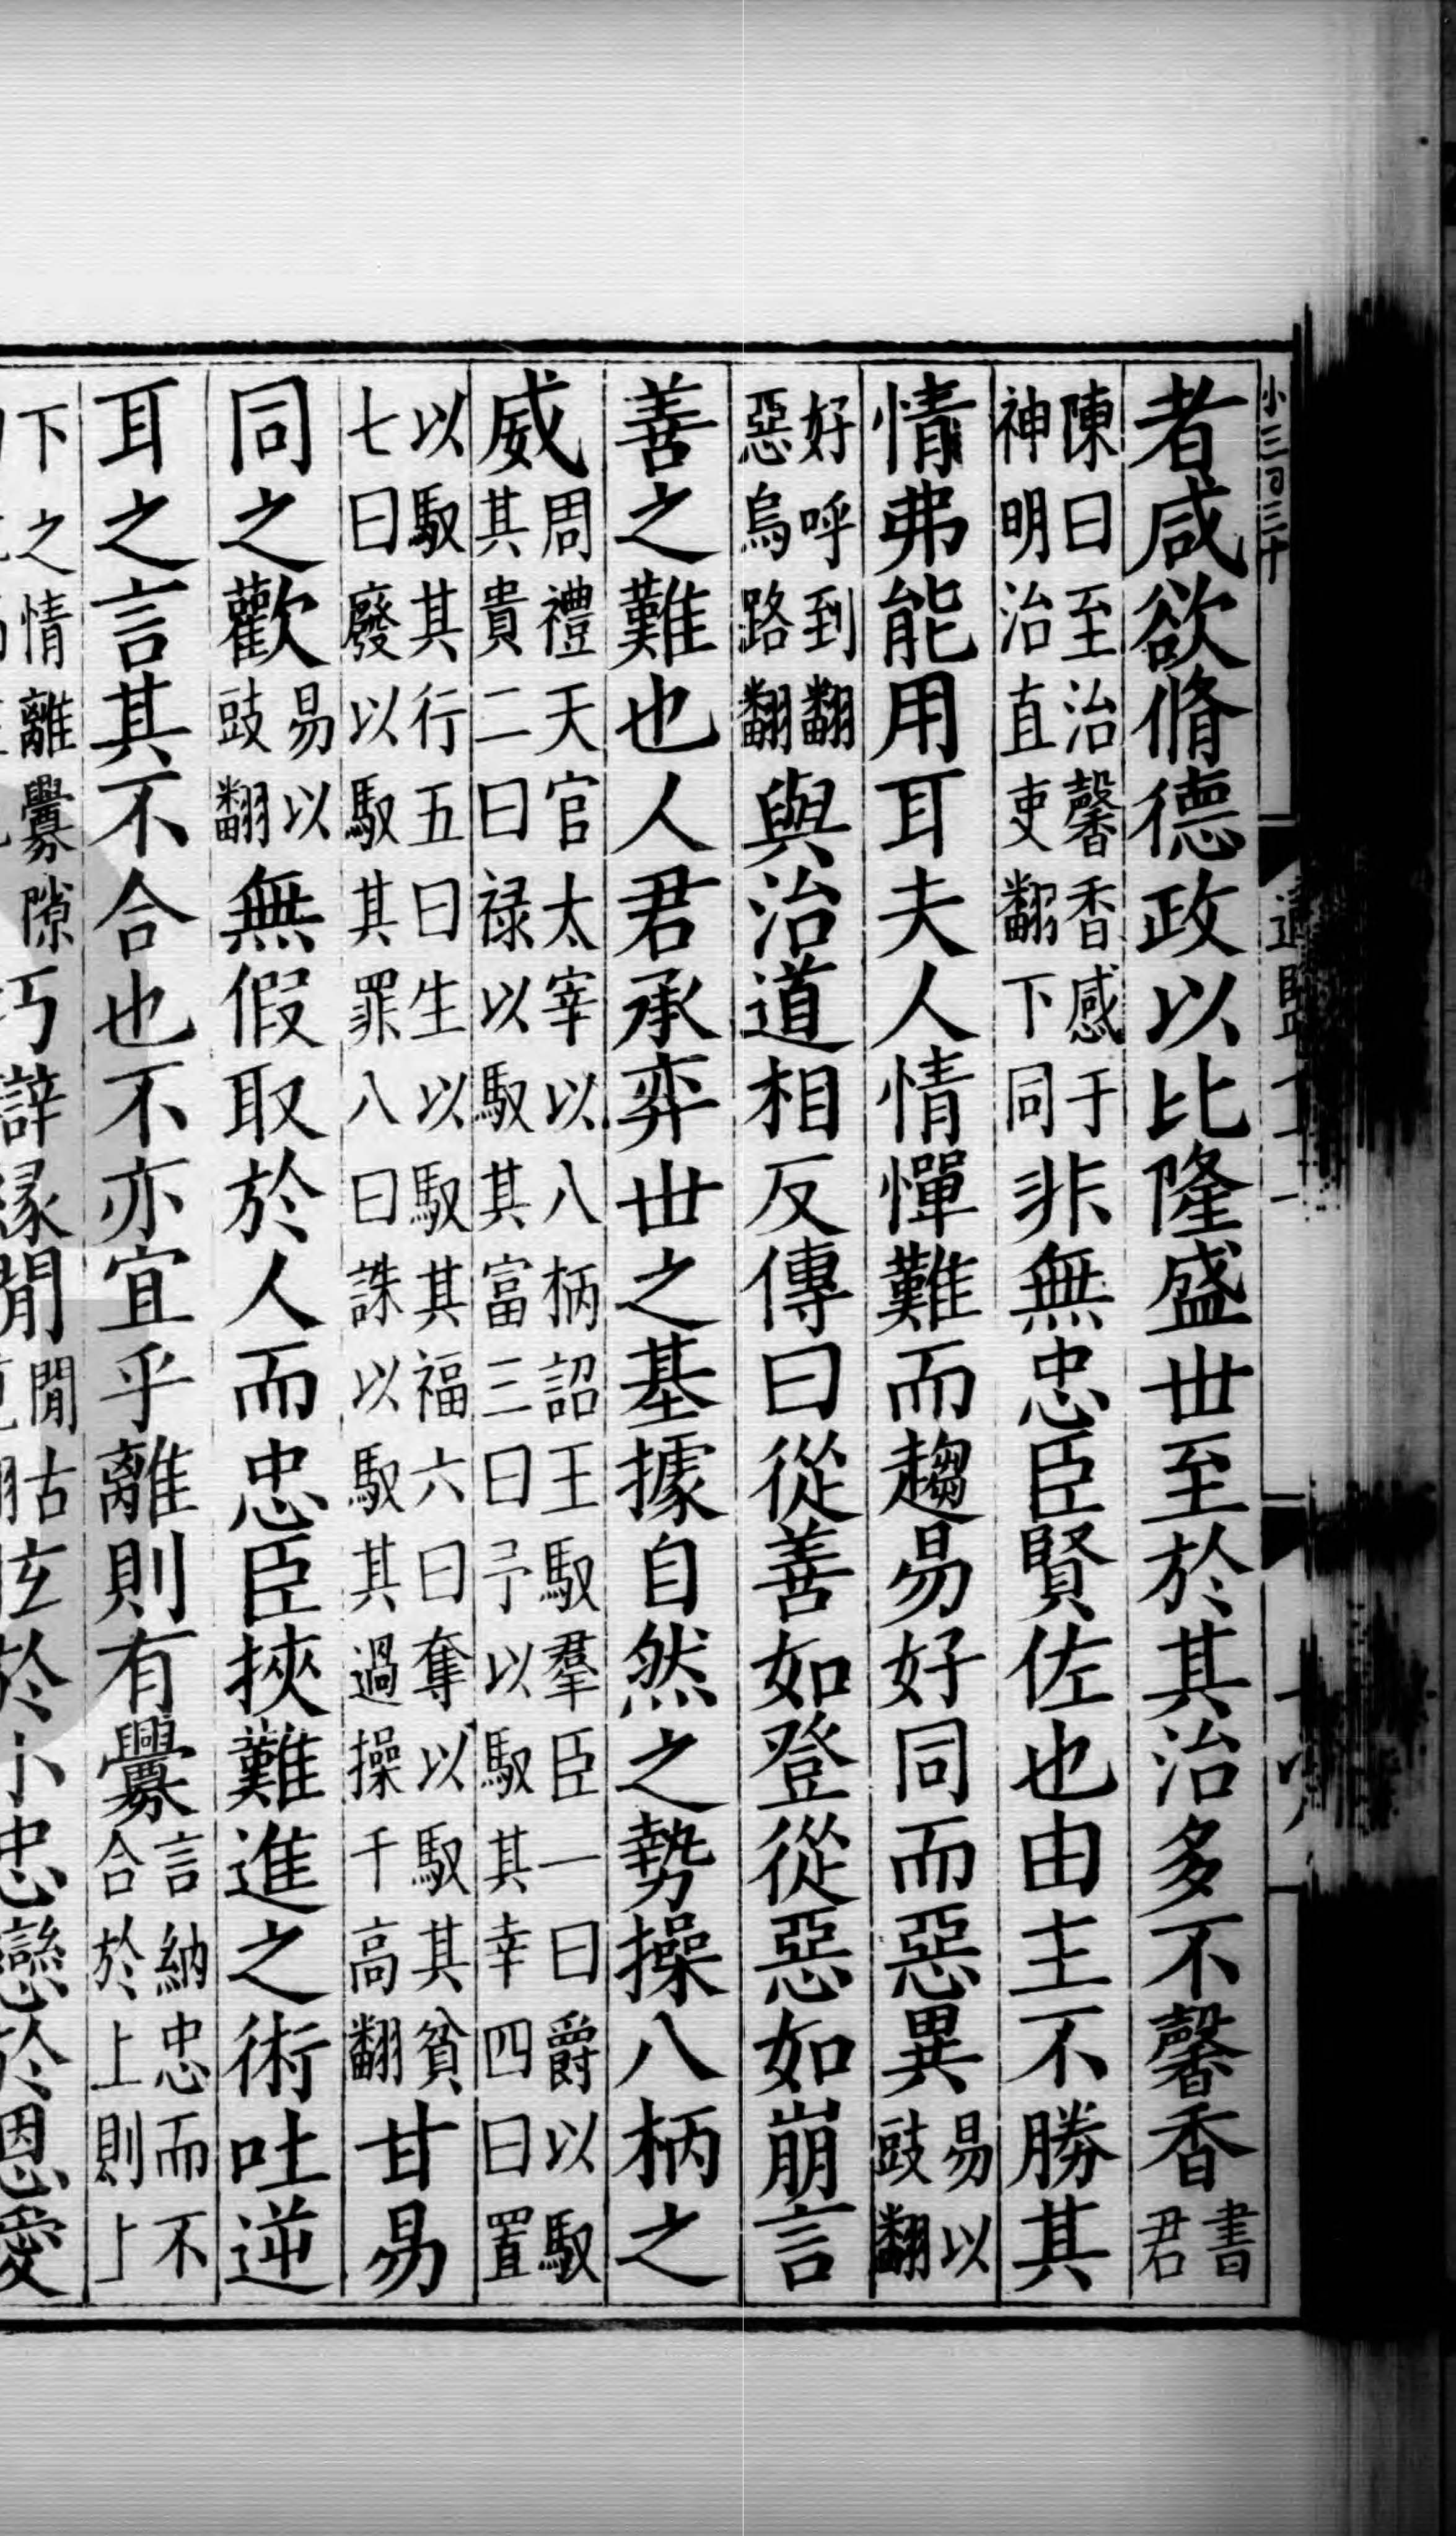 小三百三十
者咸欲脩德政以比隆盛丗至於其治多不馨香書君
陳曰至治馨香感于神明治直吏翻下同非無忠臣賢佐也由主不勝其
情弗能用耳夫人情憚難而趨易好同而惡異易以豉翻
好呼到翻惡烏路翻與治道相反傳曰從善如登從惡如崩言
善之難也人君承弈丗之基據自然之勢操八柄之
威周禮天官太宰以八柄詔王馭羣臣一曰爵以馭其貴二曰禄以馭其富三曰予以馭其幸四曰置
以馭其行五曰生以馭其福六曰奪以馭其貧七曰廢以馭其罪八曰誅以馭其過操千高翻甘易
同之歡易以豉翻無假取於人而忠臣挾難進之術吐逆
耳之言其不合也不亦宜乎離則有釁言納忠而不合於上則上
下之情離釁隙巧辯緣間間古於小忠戀於恩愛